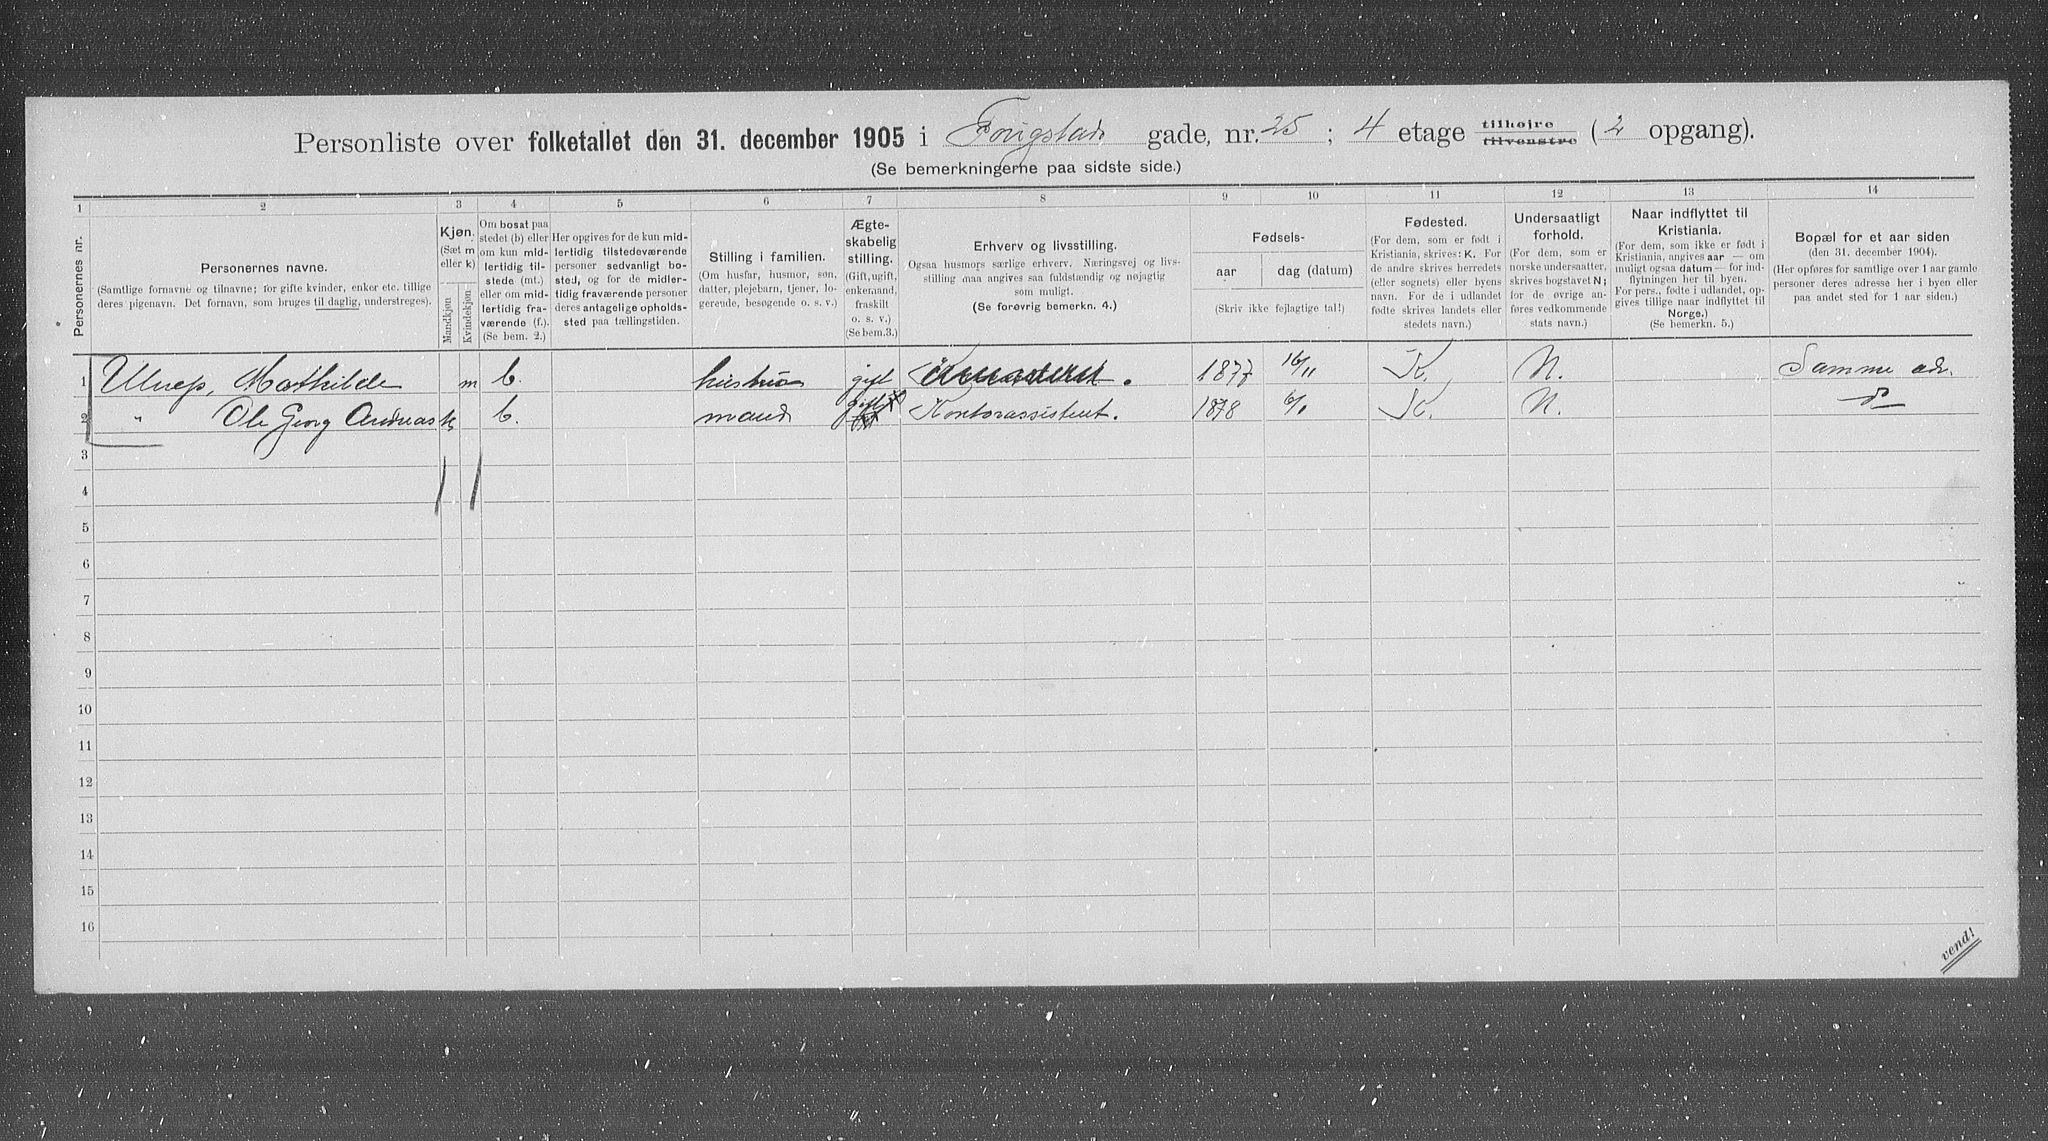 Personliste over folketallet den 31. december 1905 i Fougstads gade, nr. 25 ; 4 etage tilhøjre tilvenstre ( 2 opgang).
(Se bemerkningerne paa sidste side.)
1 2 3 4 5 6 7 8 9 10 11 12 13 14
Personernes nr.
Personernes navne.
(Samtlige fornavne og tilnavne; for gifte kvinder, enker etc. tillige
deres pigenavn. Det fornavn, som bruges til daglig, understreges).
Kjøn.
(Sæt m
eller k)
Mandkjøn
Kvindekjøn
Om bosat paa
stedet (b) eller
om kun mid-
lertidig til-
stede (mt.)
eller om mid-
lertidig fra-
værende (f.).
(Se bem. 2.)
Her opgives for de kun mid-
lertidig tilstedeværende
personer sedvanlig bo-
sted, og for de midler-
tidig fraværende personer
deres antagelige opholds-
sted paa tællingstiden.
Stilling i familien.
(Om husfar, husmor, søn,
datter, plejebarn, tjener, lo-
gerende, besøgende o. s. v.)
Ægte-
skabelig
stilling.
(Gift, ugift,
enkemand,
fraskilt
o. s. v.)
(Se bem. 3.)
Erhverv og livsstilling.
Ogsaa husmors særlige erhverv. Næringsvej og livs-
stilling maa angives saa fuldstændig og nøjagtig
som muligt.
(Se forøvrig bemerkn. 4.)
Fødsels-
aar dag (datum)
(Skriv ikke fejlagtige tal!)
Fødested.
(For dem, som er født i
Kristiania, skrives: K. For
de andre skrives herredets
(eller sognets) eller byens
navn. For de i udlandet
fødte skrives landets eller
stedets navn.)
Undersaatligt
forhold.
(For dem, som er
norske undersaatter,
skrives bogstavet N;
for de øvrige an-
føres vedkommende
stats navn.)
Naar indflyttet til
Kristiania.
(For dem, som ikke er født i
Kristiania, angives aar — om
muligt ogsaa datum — for ind-
flytningen her til byen.
For pers., fødte i udlandet, op-
gives tillige naar indflyttet til
Norge.)
(Se bemerkn. 5.)
Bopæl for et aar siden
(den 31. december 1904).
(Her opføres for samtlige over 1 aar gamle
personer deres adresse her i byen eller
paa andet sted for 1 aar siden.)
1 Mathilde m b. hustru gift 1877 16/11 K. N. Samme adr.
2 " Ole Georg Andreas k b. mand gift Kontorassistent. 1878 K. N. do
3
4
5
6
7
8
9
10
11
12
13
14
15
16
vend!